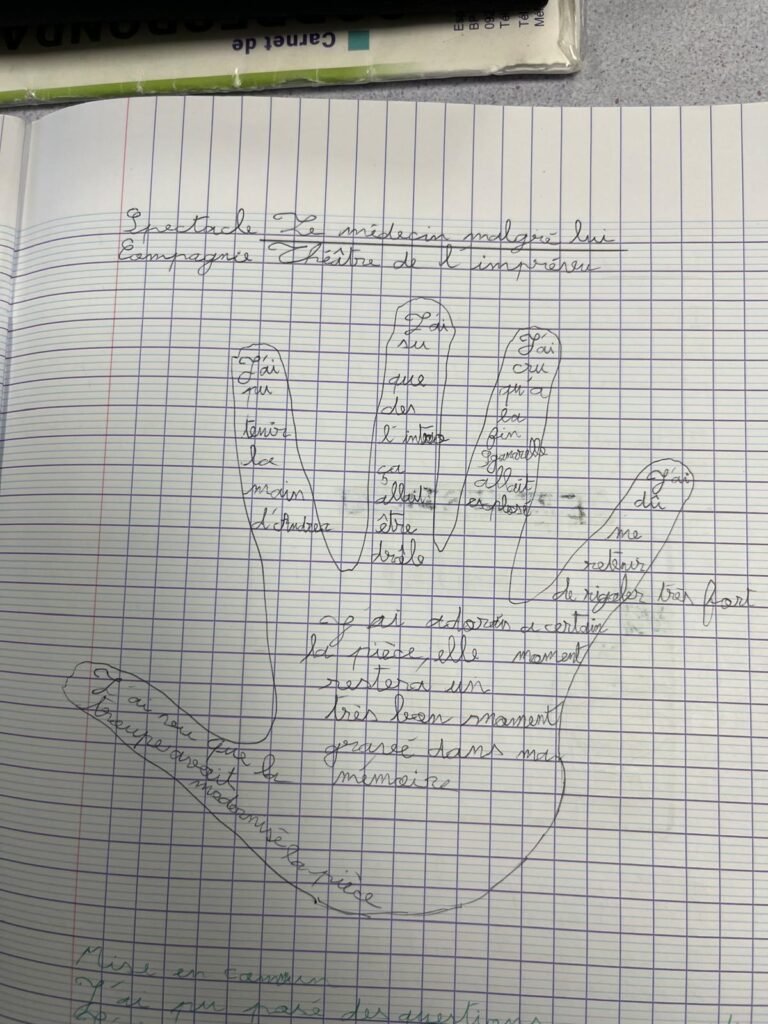 Carnet de
Spectacle Le médecin malgré lui
Compagnie Théâtre de l'imprévu
J'ai
pu
tenir
la
main
d'Andrea
J'ai
su
que
dès
l'intro
ça
allait
être
drôle
J'ai
cru
qu'à
la
fin
Sganarelle
allait
explosé
J'ai
dû
me
retenir
de rigoler très fort
à certain
moment
J'ai adoré
la pièce, elle
restera un
très bon moment
gravé dans ma
mémoire
J'ai vu que la
troupe avait
modernisé la pièce
Mise en commun
J'ai pu posé des questions